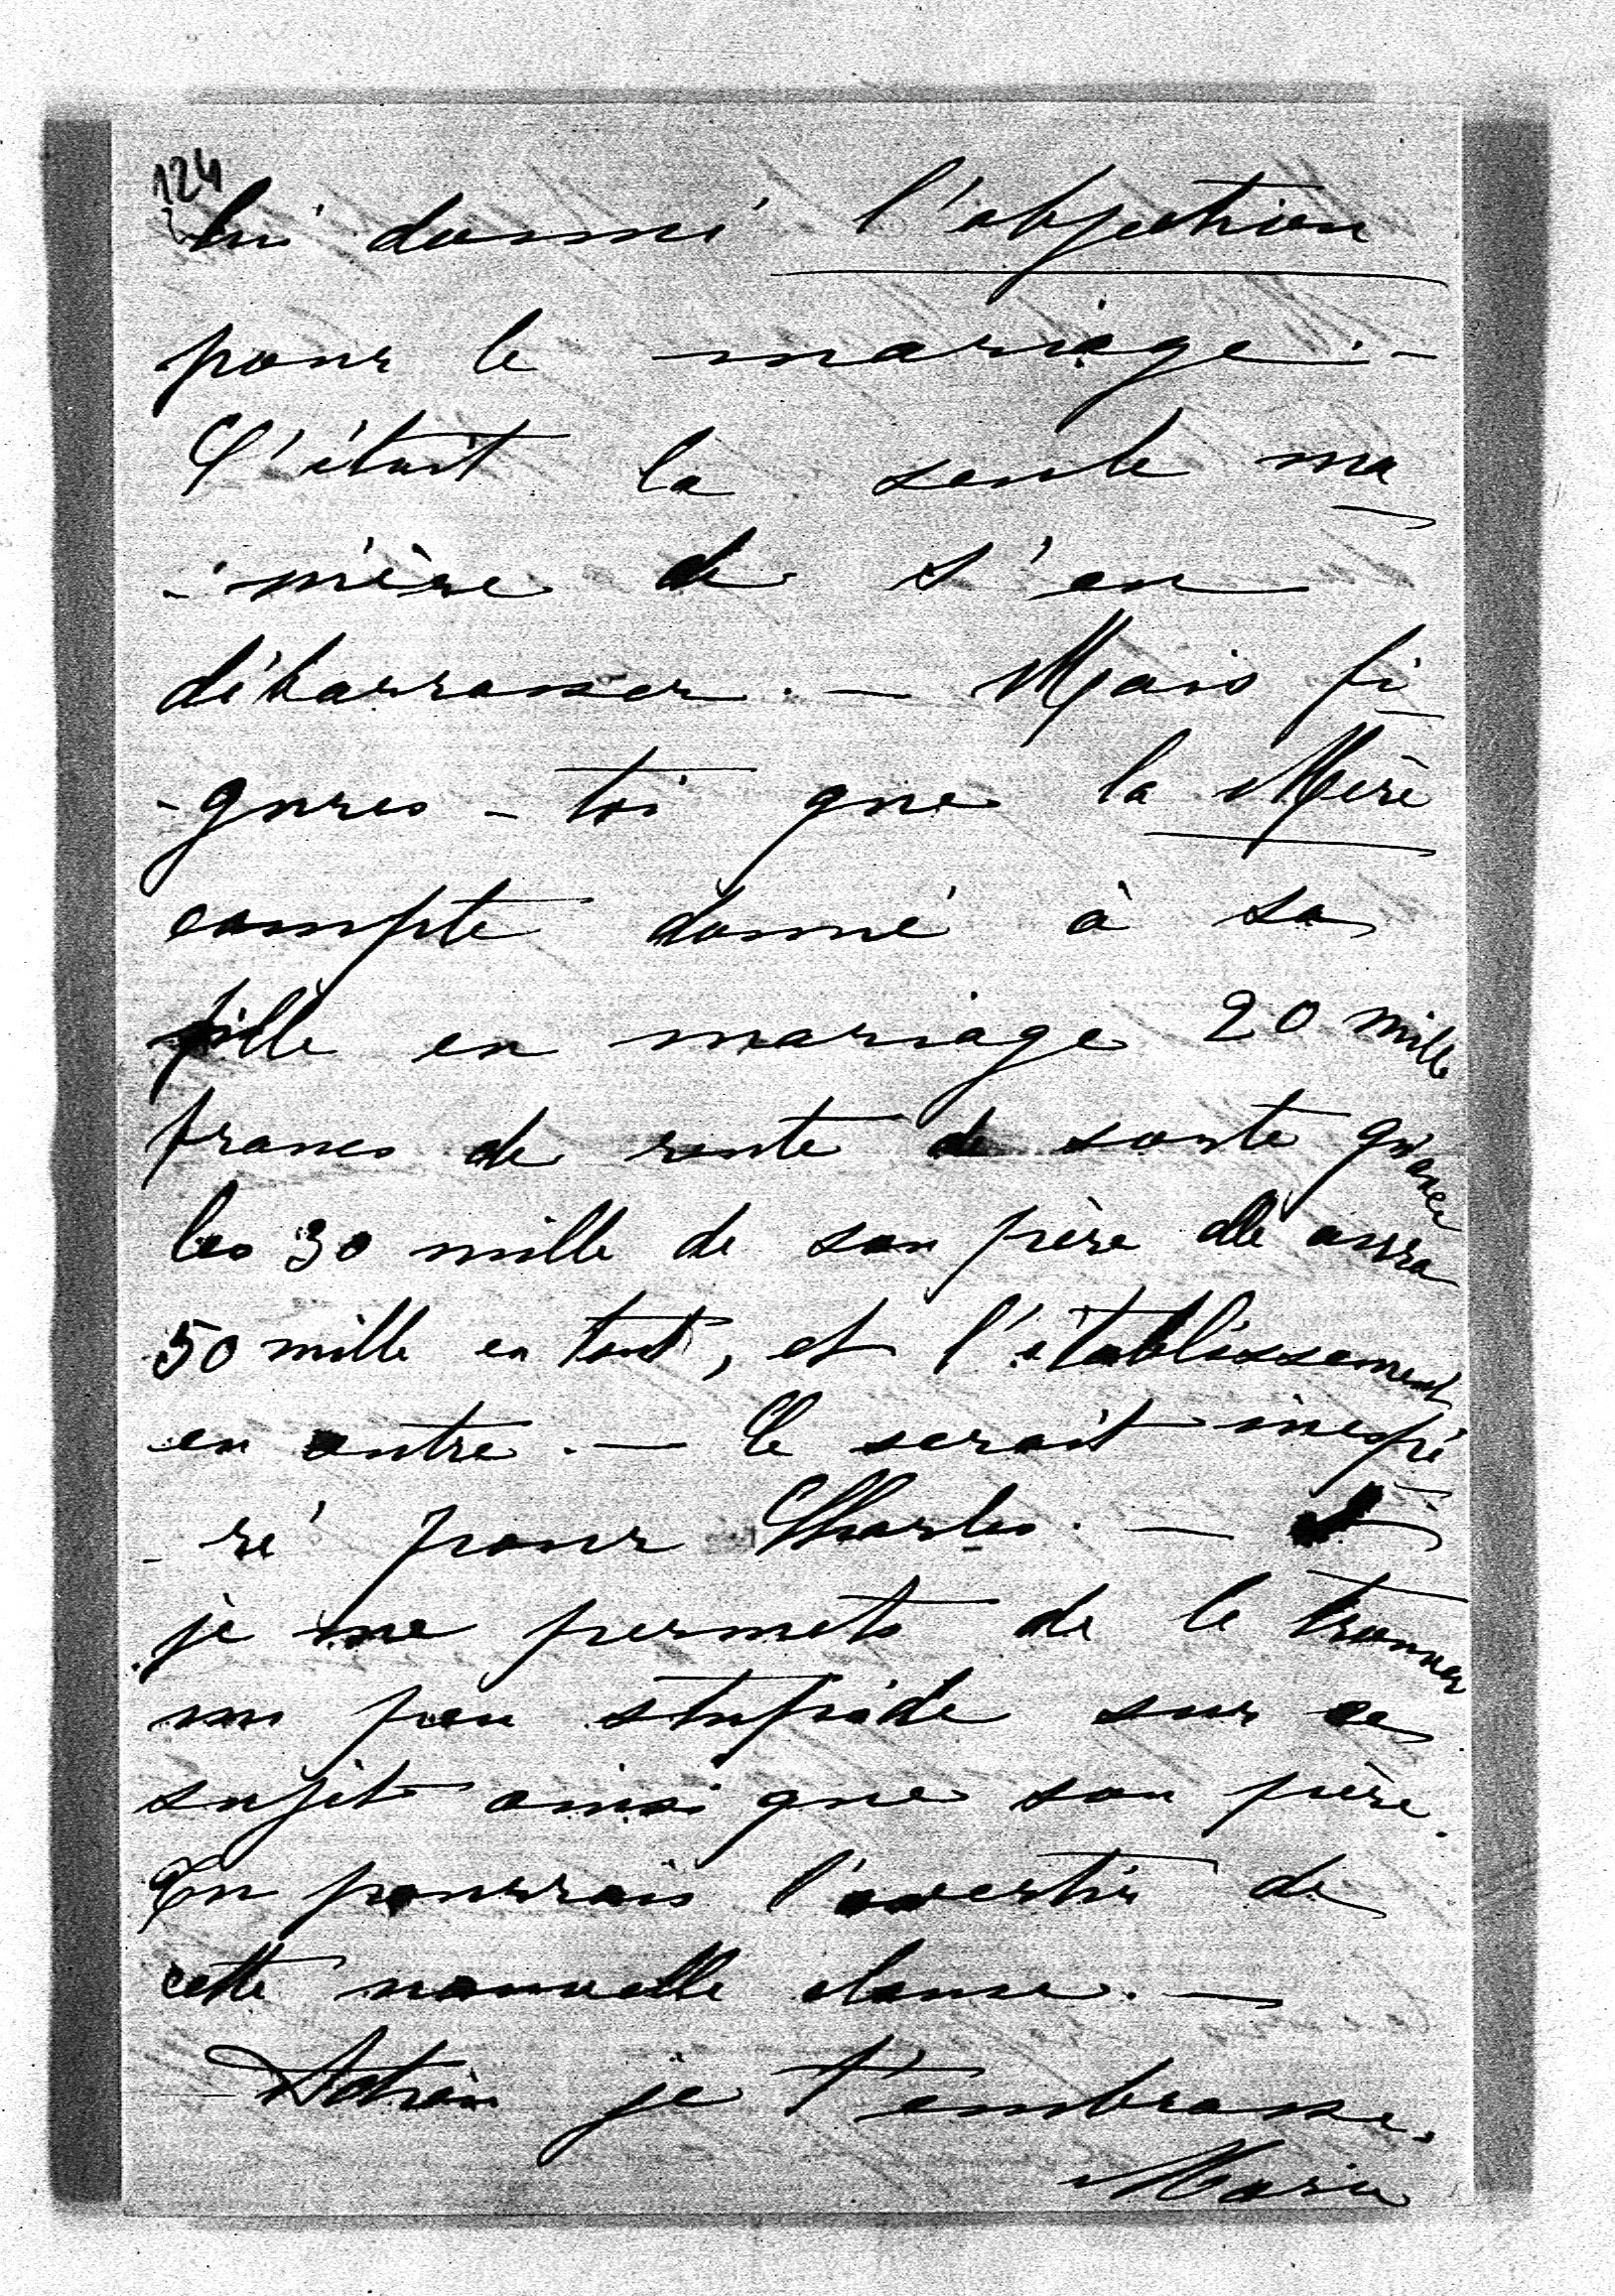 124
lui donné l'objection
pour le mariage. -
C'était la seule ma
- nière de s'en
débarrasser. - Mais fi
- gures - toi que la Mère
compte donné à sa
fille en mariage 20 mille
francs de rente de sorte qu'avec
les 30 mille de son père elle aura
50 mille en tout, et l'établissement
en outre. - Ce serait inespé
- ré pour Charles. - Et
je me permets de le trouver
un peu stupide sur ce
sujet ainsi que son père.
Tu pourrais l'avertir de
cette nouvelle clause. -
je t'embrasse.
Marie